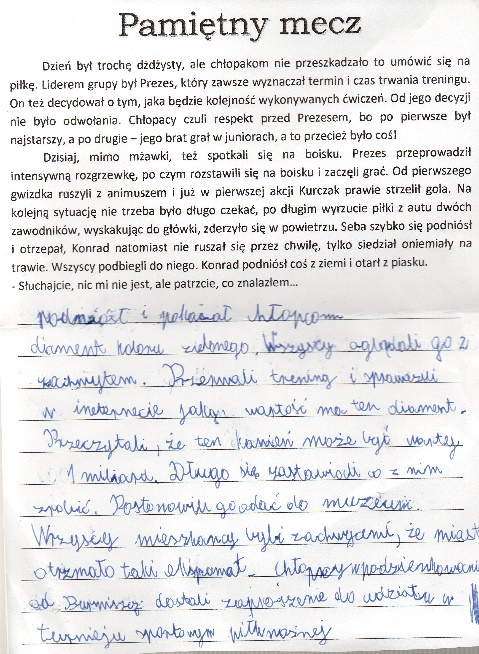 Pamiętny mecz
Dzień był trochę dżdżysty, ale chłopakom nie przeszkadzało to umówić się na
piłkę. Liderem grupy był Prezes, który zawsze wyznaczał termin i czas trwania treningu.
On też decydował o tym, jaka będzie kolejność wykonywanych ćwiczeń. Od jego decyzji
nie było odwołania. Chłopacy czuli respekt przed Prezesem, bo po pierwsze był
najstarszy, a po drugie – jego brat grał w juniorach, a to przecież było coś!
Dzisiaj, mimo mżawki, też spotkali się na boisku. Prezes przeprowadził
intensywną rozgrzewkę, po czym rozstawili się na boisku i zaczęli grać. Od pierwszego
gwizdka ruszyli z animuszem i już w pierwszej akcji Kurczak prawie strzelił gola. Na
kolejną sytuację nie trzeba było długo czekać, po długim wyrzucie piłki z autu dwóch
zawodników, wyskakując do główki, zderzyło się w powietrzu. Seba szybko się podniósł
i otrzepał, Konrad natomiast nie ruszał się przez chwilę, tylko siedział oniemiały na
trawie. Wszyscy podbiegli do niego. Konrad podniósł coś z ziemi i otarł z piasku.
- Słuchajcie, nic mi nie jest, ale patrzcie, co znalazłem...
i pokazał chłopcom
diament koloru zielonego. Wszyscy oglądali go z
zachwytem. Przerwali trening i sprawdzili
w internecie jaką wartość ma ten diament.
Przeczytali, że ten kamień może być warty
1 miliard. Długo się zastawiali co z nim
zrobić. Postanowili go oddać do muzeum.
Wszyscy mieszkańcy byli zachwyceni, że miast
otrzmało taki eksponat. Chłopacy w podziękowani
od dostali zaproszenie do udziału w
turnieju sportowym piłki nożnej